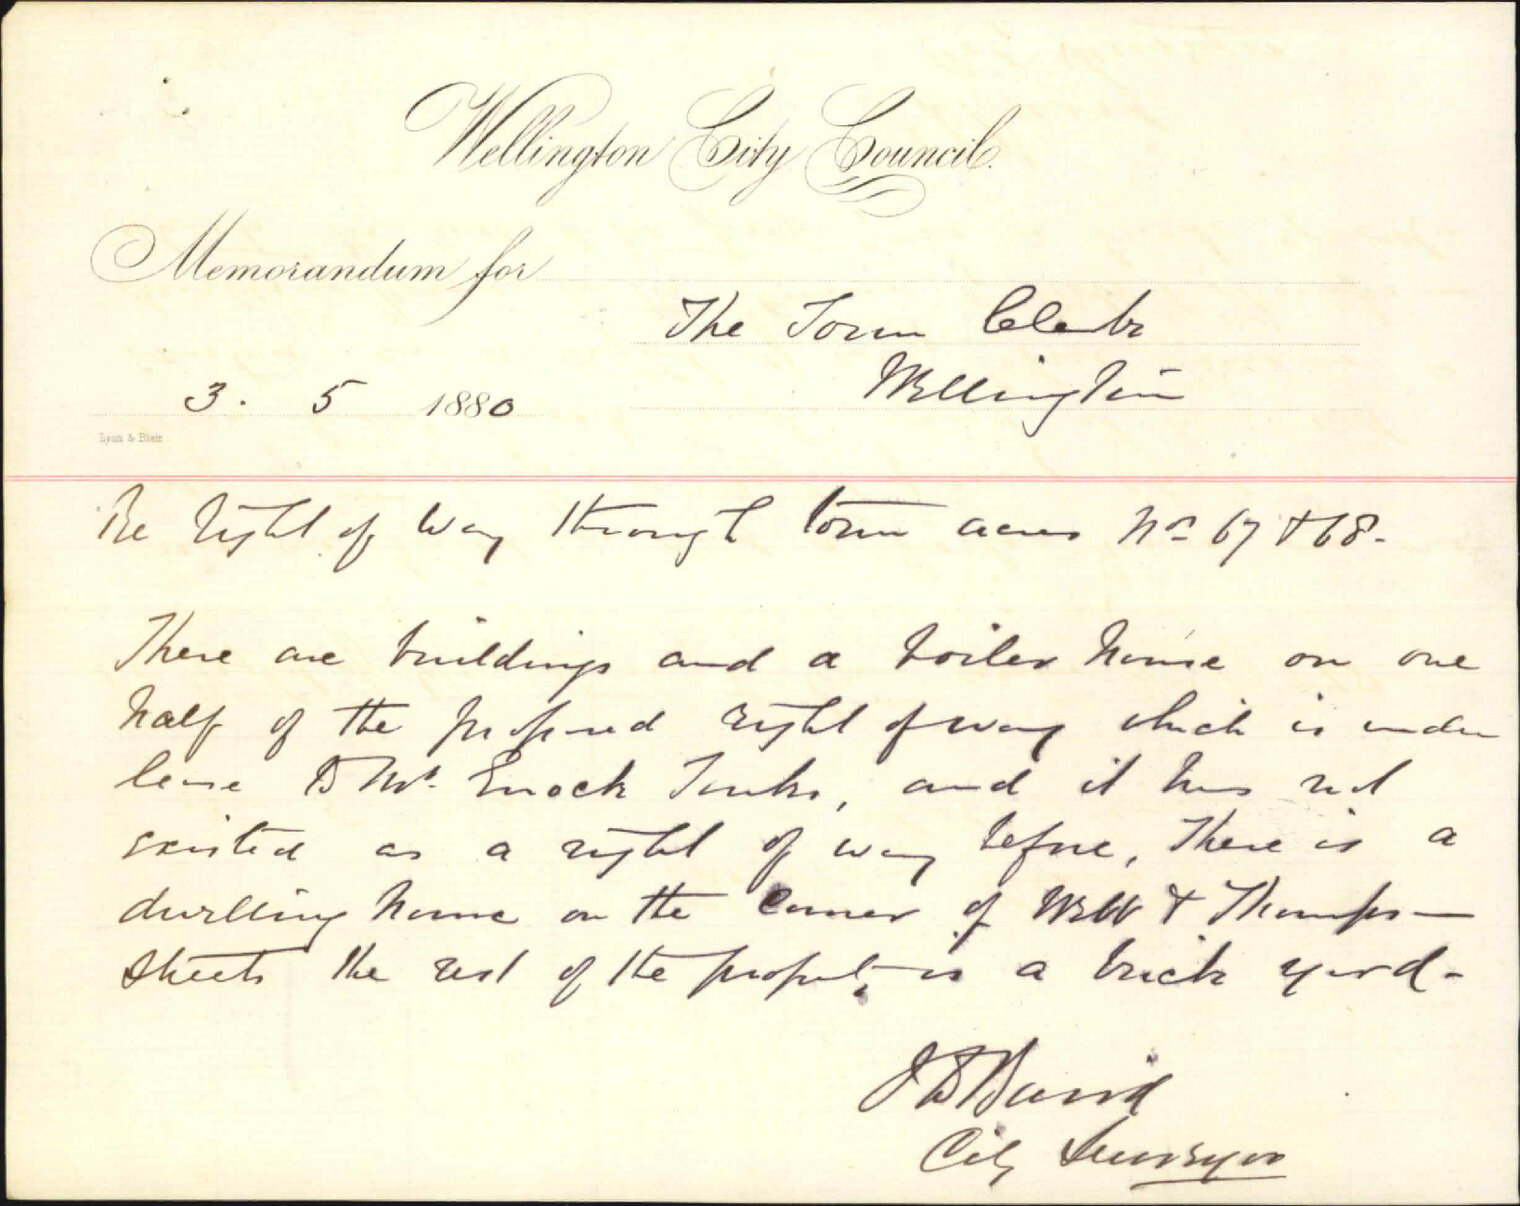 Wellington City Council.
Memorandum for
The Town Clerk
Wellington
3. 5 1880
Lyon & Blair
Re right of way through town acres Nos 67 & 68.
There are buildings and a boiler house on one
half of the proposed right of way which is under
lease to Mr. Enoch Tonks, and it has not
existed as a right of way before, There is a
dwelling house on the corner of Webb & Thompson
Streets the rest of the property is a brick yard-
J D Baird
City Surveyor